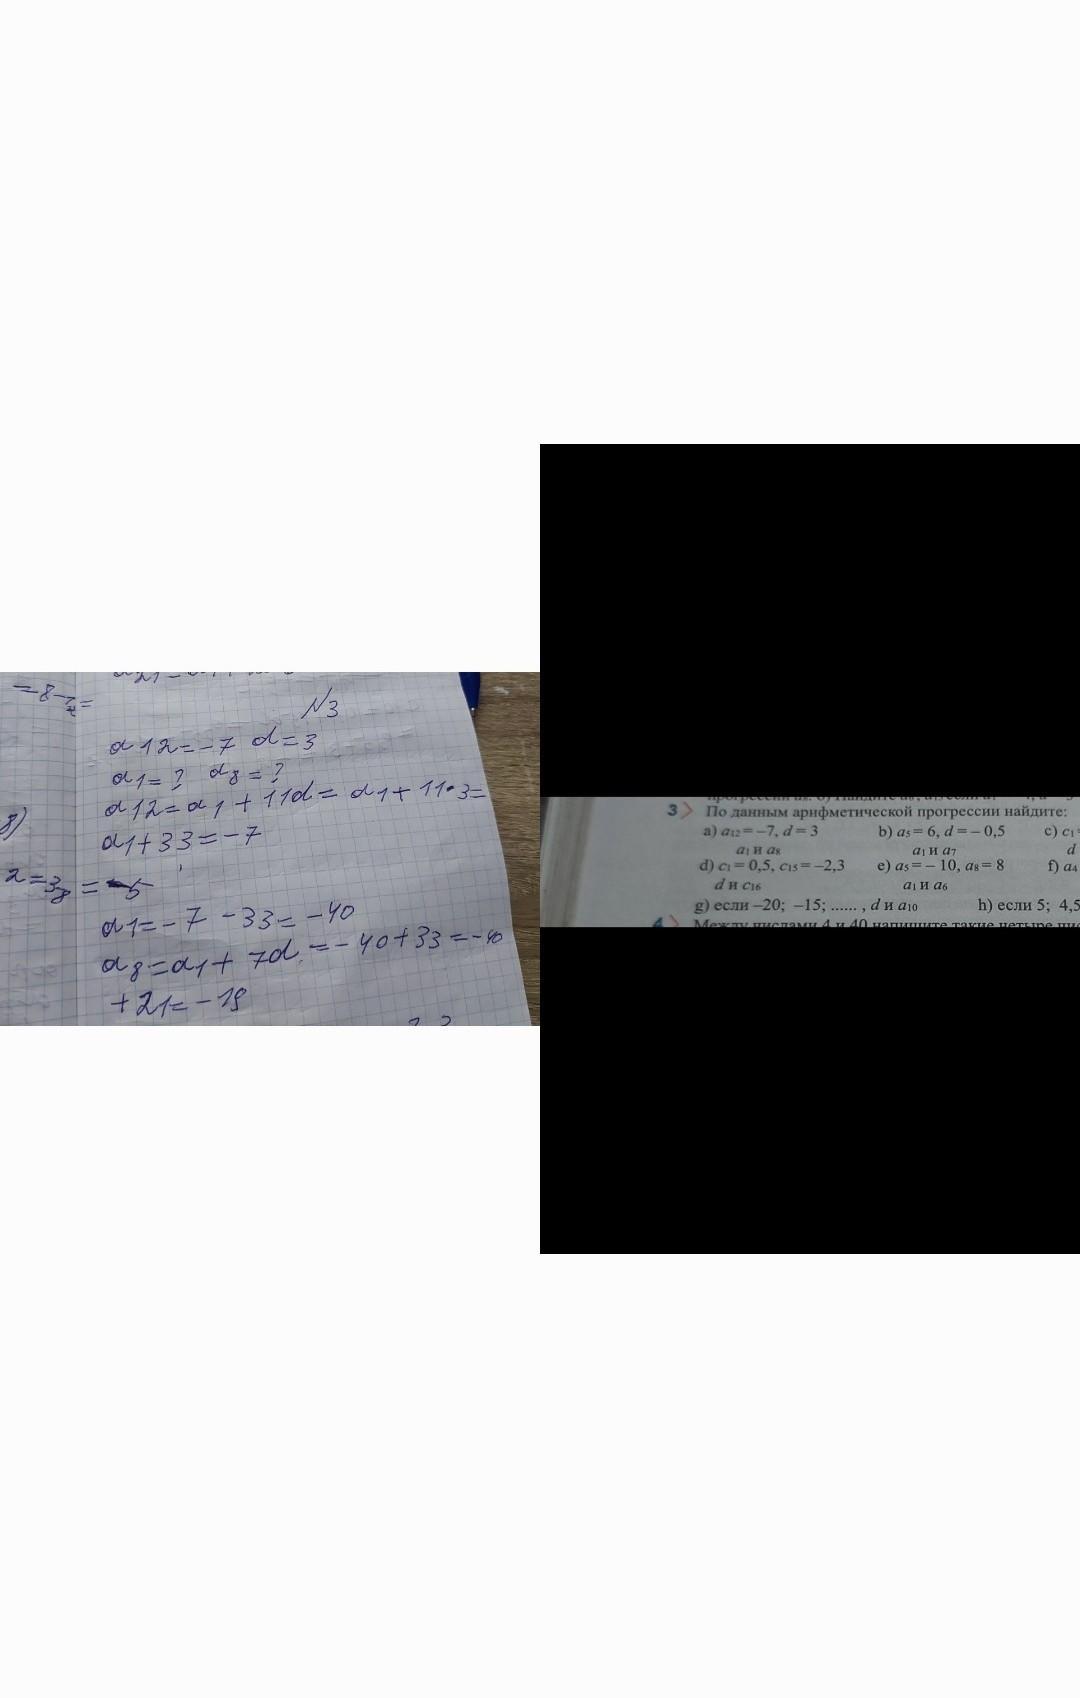 =-8-
N3
a12=-7 d=3
a1=? a8=?
a12=a1+11d=a1+11·3=
a1+33=-7
8)
a1=-7-33=-40
a8=a1+7d=-40+33=-40
+21=-19
3> По данным арифметической прогрессии найдите:
a) a12 = –7, d = 3 b) a5 = 6, d = – 0,5 c) c1=
a1 и a8 a1 и a7 d
d) c1 = 0,5, c15 = –2,3 e) a5 = – 10, a8 = 8 f) a4
d и c16 a1 и a6
g) если –20; –15; ...... , d и a10 h) если 5; 4,5
4> Между числами 4 и 40 напишите такие четыре